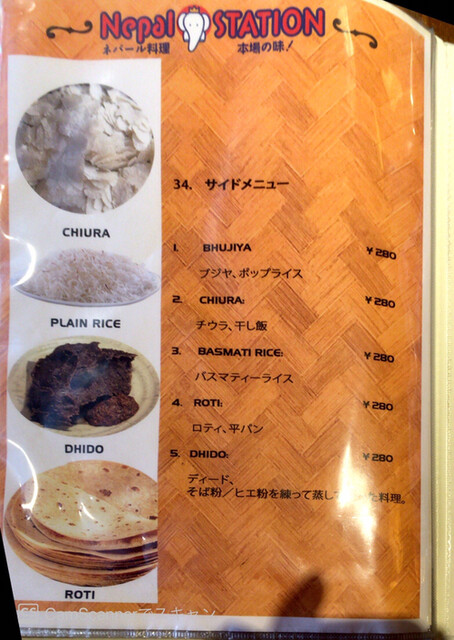 Nepal STATION
ネパール料理 本場の味!
CHIURA
PLAIN RICE
DHIDO
ROTI
34. サイドメニュー
1. BHUJIYA ¥280
ブジヤ、ポップライス
2. CHIURA: ¥280
チウラ、干し飯
3. BASMATI RICE: ¥280
バスマティーライス
4. ROTI: ¥280
ロティ、平パン
5. DHIDO: ¥280
ディード、
そば粉/ヒエ粉を練って蒸して た料理。
でスキャン